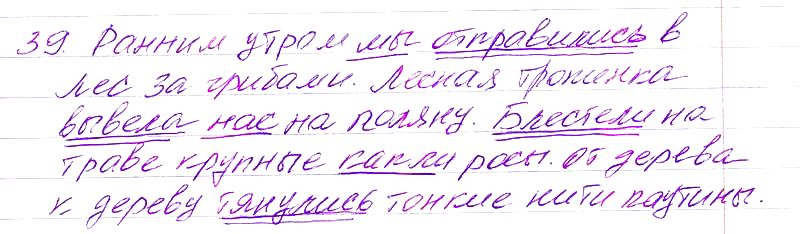 39. Ранним утром мы отправились в
лес за грибами. Лесная тропинка
вывела нас на поляну. Блестели на
траве крупные капли росы. От дерева
к дереву тянулись тонкие нити паутины.